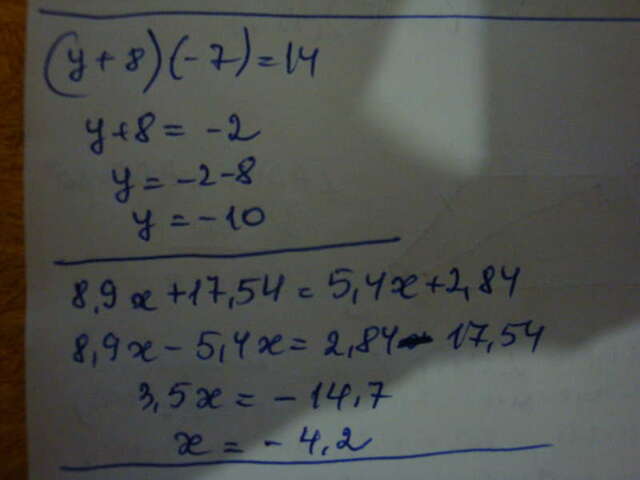 (y+8)(-7)=14
y+8=-2
y=-2-8
y=-10
8,9x+17,54=5,4x+2,84
8,9x-5,4x=2,84-17,54
3,5x=-14,7
x=-4,2